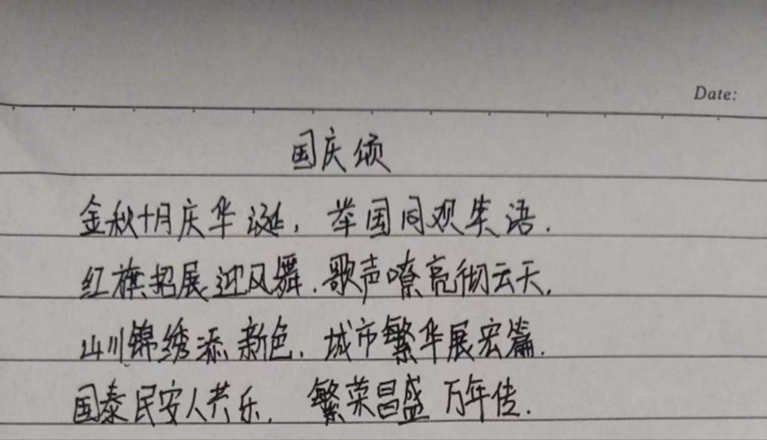 Date:
国庆颂
金秋十月庆华诞，举国同观笑语.
红旗招展迎风舞.歌声嘹亮彻云天.
山川锦绣添新色.城市繁华展宏篇.
国泰民安人共乐.繁荣昌盛万年传.